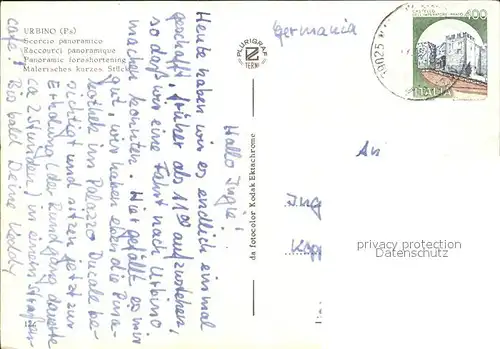 URBINO (Ps)
Scorcio panoramico
Raccourci panoramique
Panoramic foreshortening
Malerisches kurzes Stück
Hallo Ingie!
Heute haben wir es endlich einmal
geschafft, früher als 11⁰⁰ aufzustehen,
so daß wir eine Fahrt nach Urbino
machen konnten. Hier gefällt es mir
gut, wir haben eben die Pina-
kothek im Palazzo Ducale be-
sichtigt und sitzen jetzt zur
Erholung (der Rundgang dauerte
ca 2 Stunden) in einem Straßen-
café! Bis bald Deine Kiddy
PLURIGRAF
TERNI
da fotocolor Kodak Ektachrome
germania
61025
400
ITALIA
An
Ing
Kop
privacy protection
Datenschutz